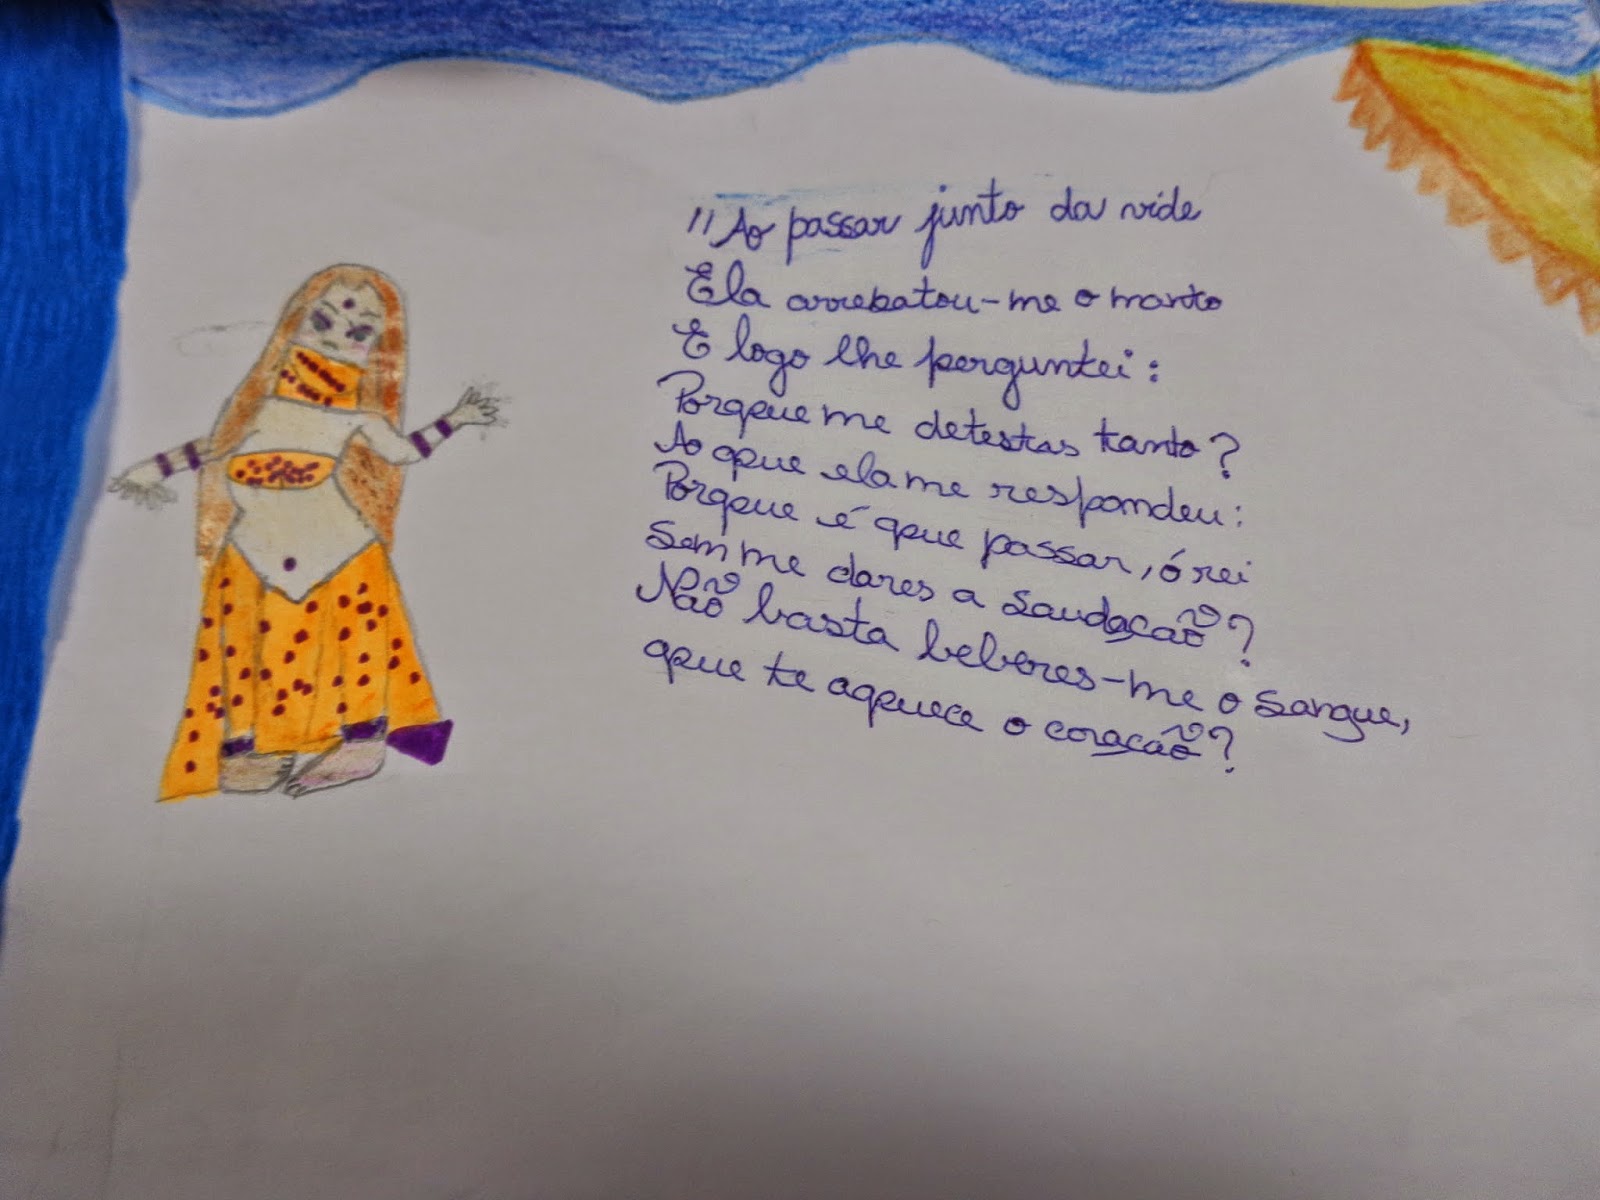 "Ao passar junto da vide
Ela arrebatou-me o manto
E logo lhe perguntei:
Porque me detestas tanto?
Ao que ela me respondeu:
Porque é que passar, ó rei
Sem me dares a saudação?
Não basta beberes-me o sangue,
que te aquece o coração?